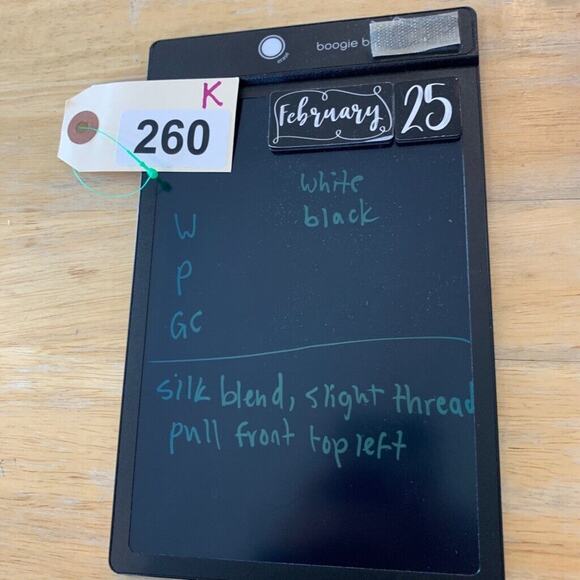 boogie b
erase
K
260
February 25
white
black
W
P
GC
silk blend, slight thread
pull front top left